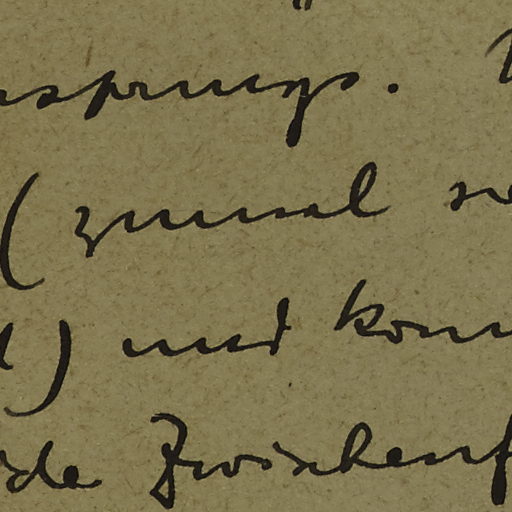 nsprungs.
(zumal
) und kom
de Zwischenf